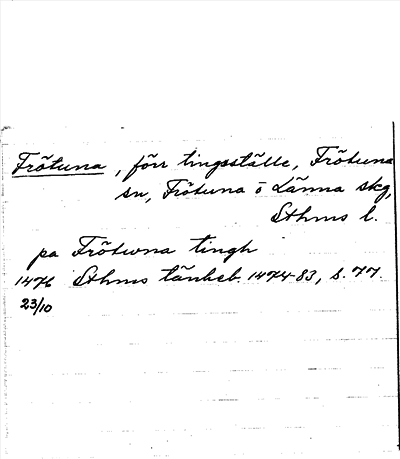 Frötuna, förr tingsställe, Frötuna
sn, Frötuna o Länna skg,
Sthms l.
pa Frötwna tingh
1476 Sthms tänkeb. 1474-83, s. 77.
23/10